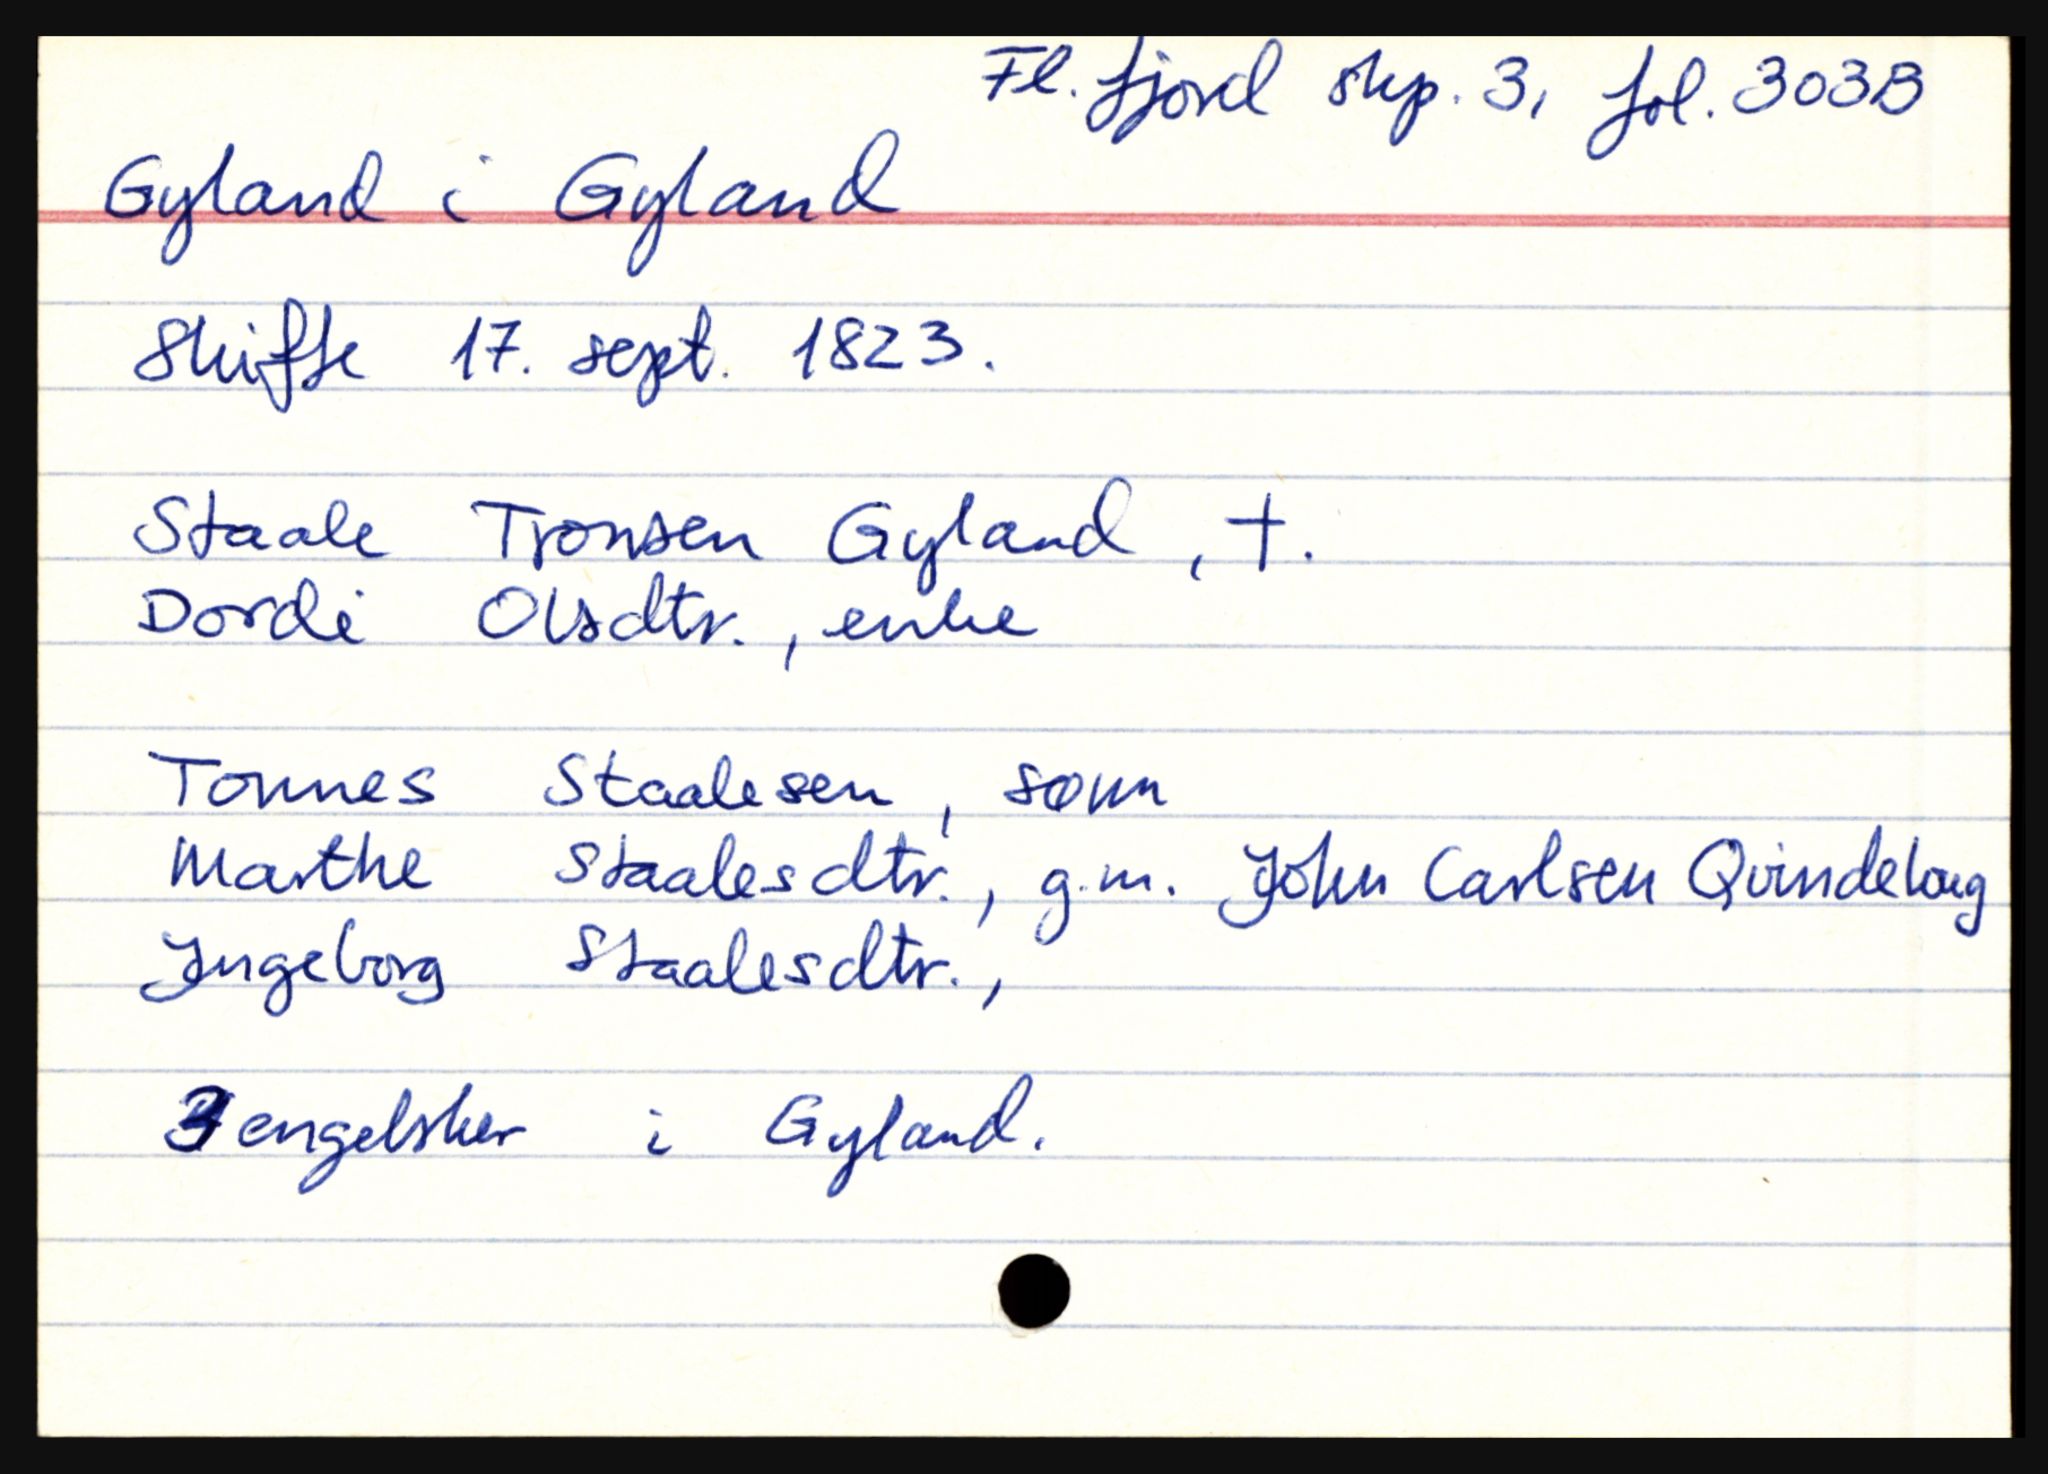 Fl. fjord skp. 3, fol. 303B
Gyland i Gyland
Skifte 17. sept. 1823.
Staale Tronsen Gyland, †.
Dordi Olsdtr., enke
Tonnes Staalesen, sønn
Marthe Staalesdtr., g.m. John Carlsen Qvindelaug
Ingeborg Staalesdtr.,
3 engelsker i Gyland.